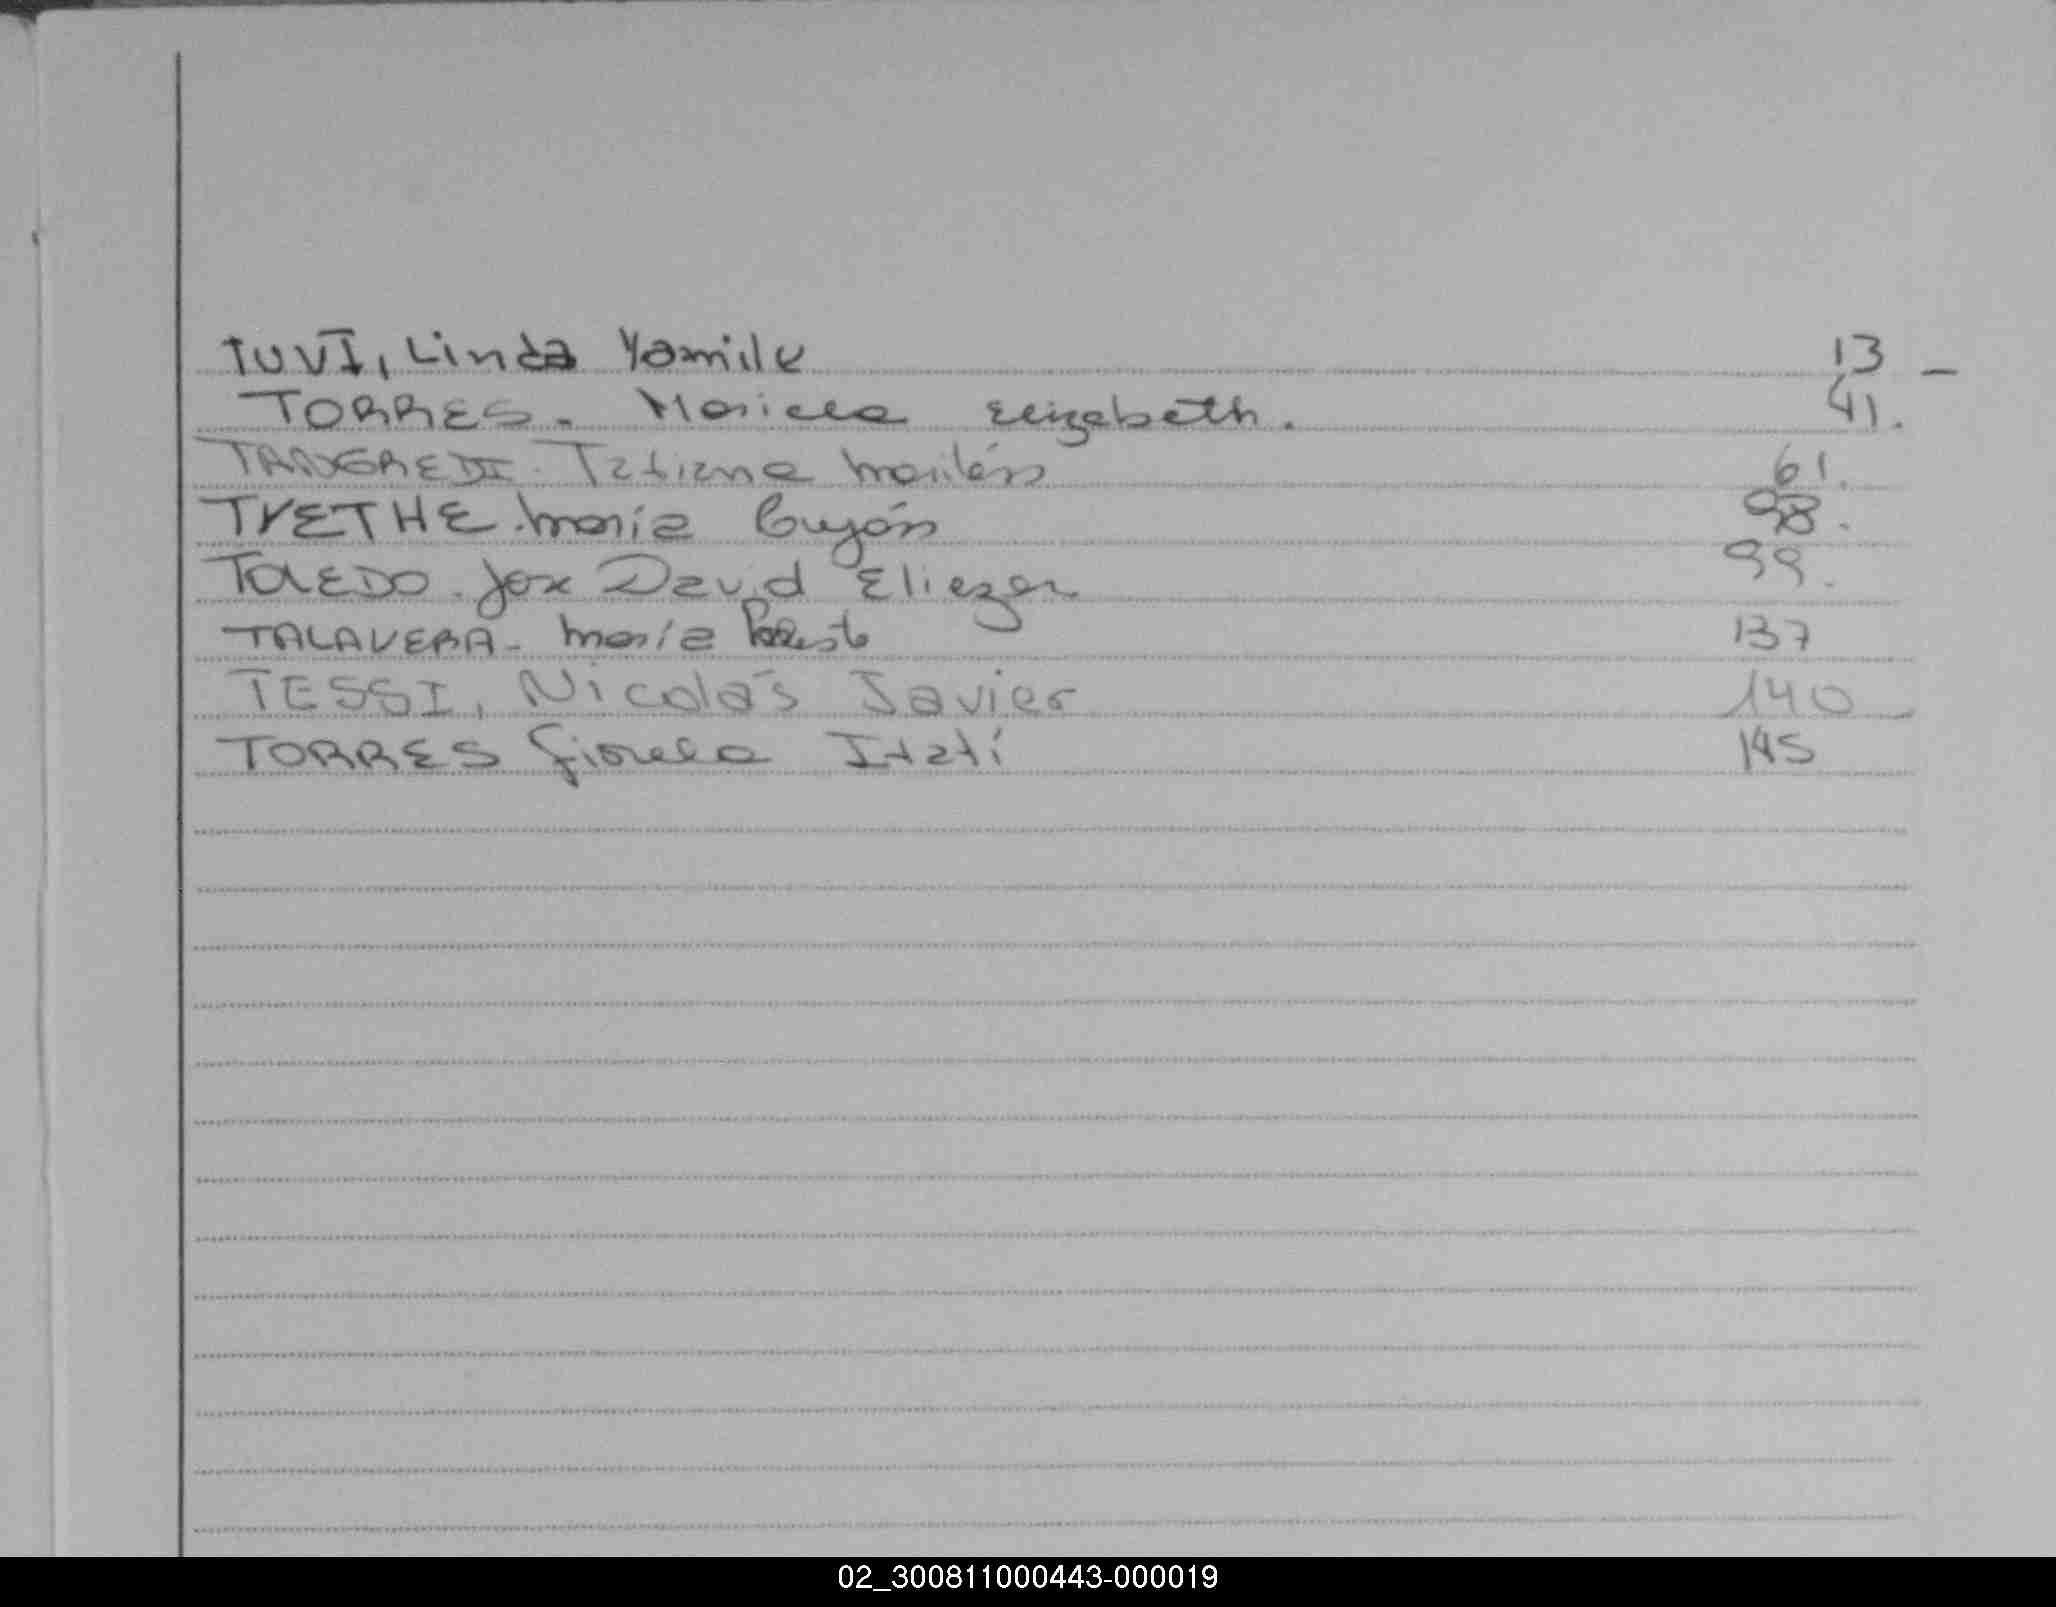 TUVI, Linda Yamile 13 -
TORRES. Mariela Elizabeth. 41.
TANGREDI. Tatiana 61.
TVETHE. María Luján 98.
TOLEDO. Jose David Eliezer 99.
TALAVERA. María 137
TESSI, Nicolás Javier 140
TORRES Fiorela Itatí 145
02_300811000443-000019